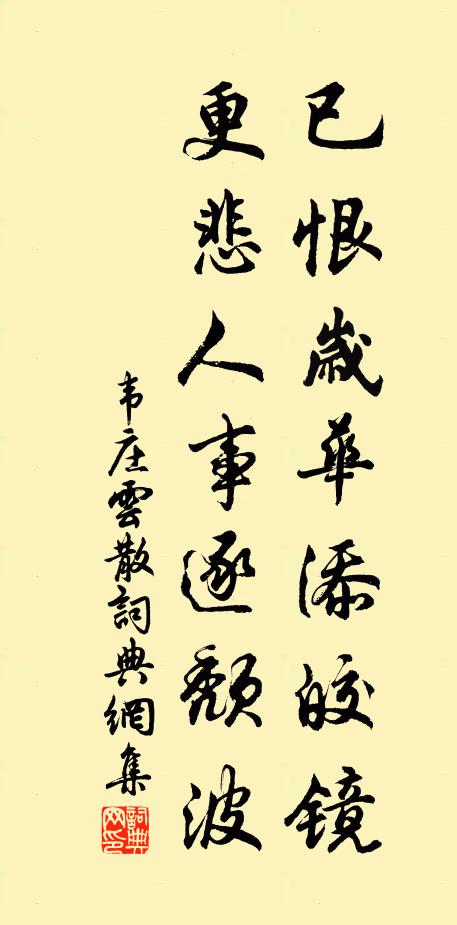 已恨歲華添皎镜
更悲人事逐颓波
韦庄雲散詞典網集
詞典网印